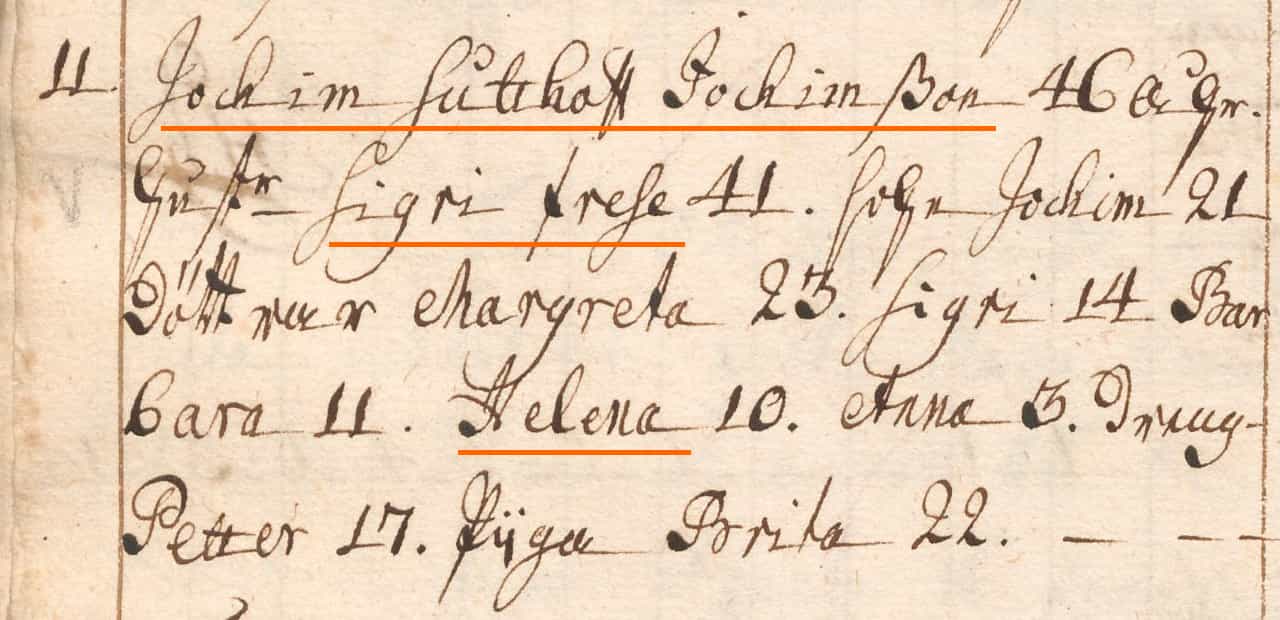 11. Jochim Hutthoff Jochimßon 46 åhr.
Hustr Sigri frese 41. Sohn Jochim 21
Döttrar Margreta 23. Sigri 14 Bar
bara 11. Helena 10. Anna 3. Dreng
Petter 17. Pijga Brita 22. — — —